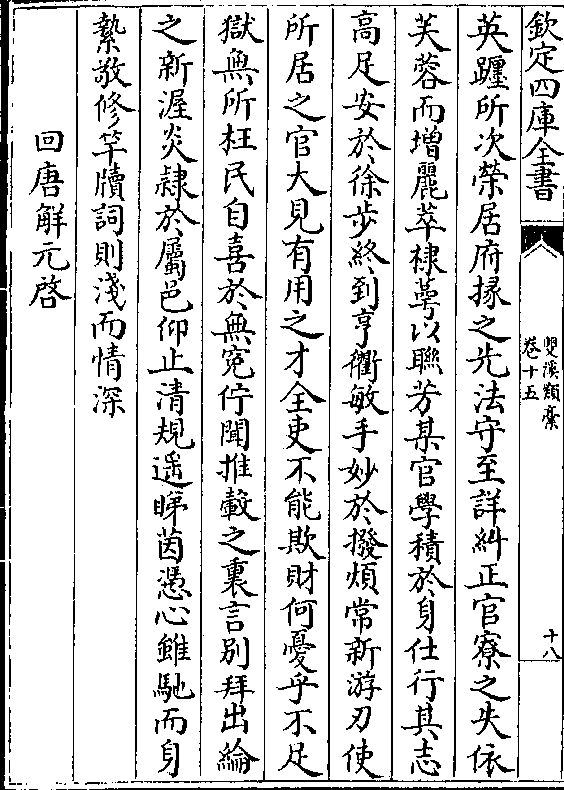 欽定四庫全書
雙溪類稾
卷十五
十八
英躔所次榮居府掾之先法守至詳糾正官寮之失依
芙蓉而增麗萃棣萼以聯芳某官學積於身仕行其志
高足安於徐步終到亨衢敏手妙於撥煩常新游刃使
所居之官大見有用之才全吏不能欺財何憂乎不足
獄無所枉民自喜於無寃佇聞推轂之裏言别拜出綸
之新渥炎隷於屬邑仰止清規遥睇茵憑心雖馳而身
縶敬修竿牘詞則淺而情深
回唐解元啓